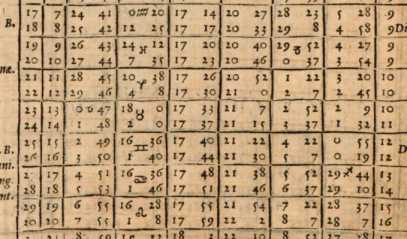 17 7 24 41 0 ♒ 20 17 14 20 27 28 23 5 28 9
B. 18 8 25 42 12 25 17 17 20 33 29 8 4 58 9
19 9 26 43 24 ♓ 12 17 20 20 40 29 52 4 27 9
20 10 27 44 7 35 17 23 10 46 0 37 3 54 9
21 11 28 45 20 38 17 26 20 52 1 22 3 20 10
22 12 29 46 4 8 17 30 21 0 2 7 2 45 10
23 13 0 47 18 0 17 33 21 7 2 52 2 9 10
24 14 1 48 2 0 17 37 21 15 3 37 1 32 11
25 15 2 49 16 36 17 40 21 22 4 22 0 55 12
26 16 3 50 1 40 17 44 21 30 5 7 0 19 12
27 17 4 51 16 36 17 48 21 38 5 52 29 44 13
28 18 5 53 1 46 17 51 21 46 6 37 29 10 14
29 19 6 55 16 ♌ 28 17 55 21 54 7 22 28 37 15
20 20 7 55 1 8 17 59 22 2 8 7 28 7 16